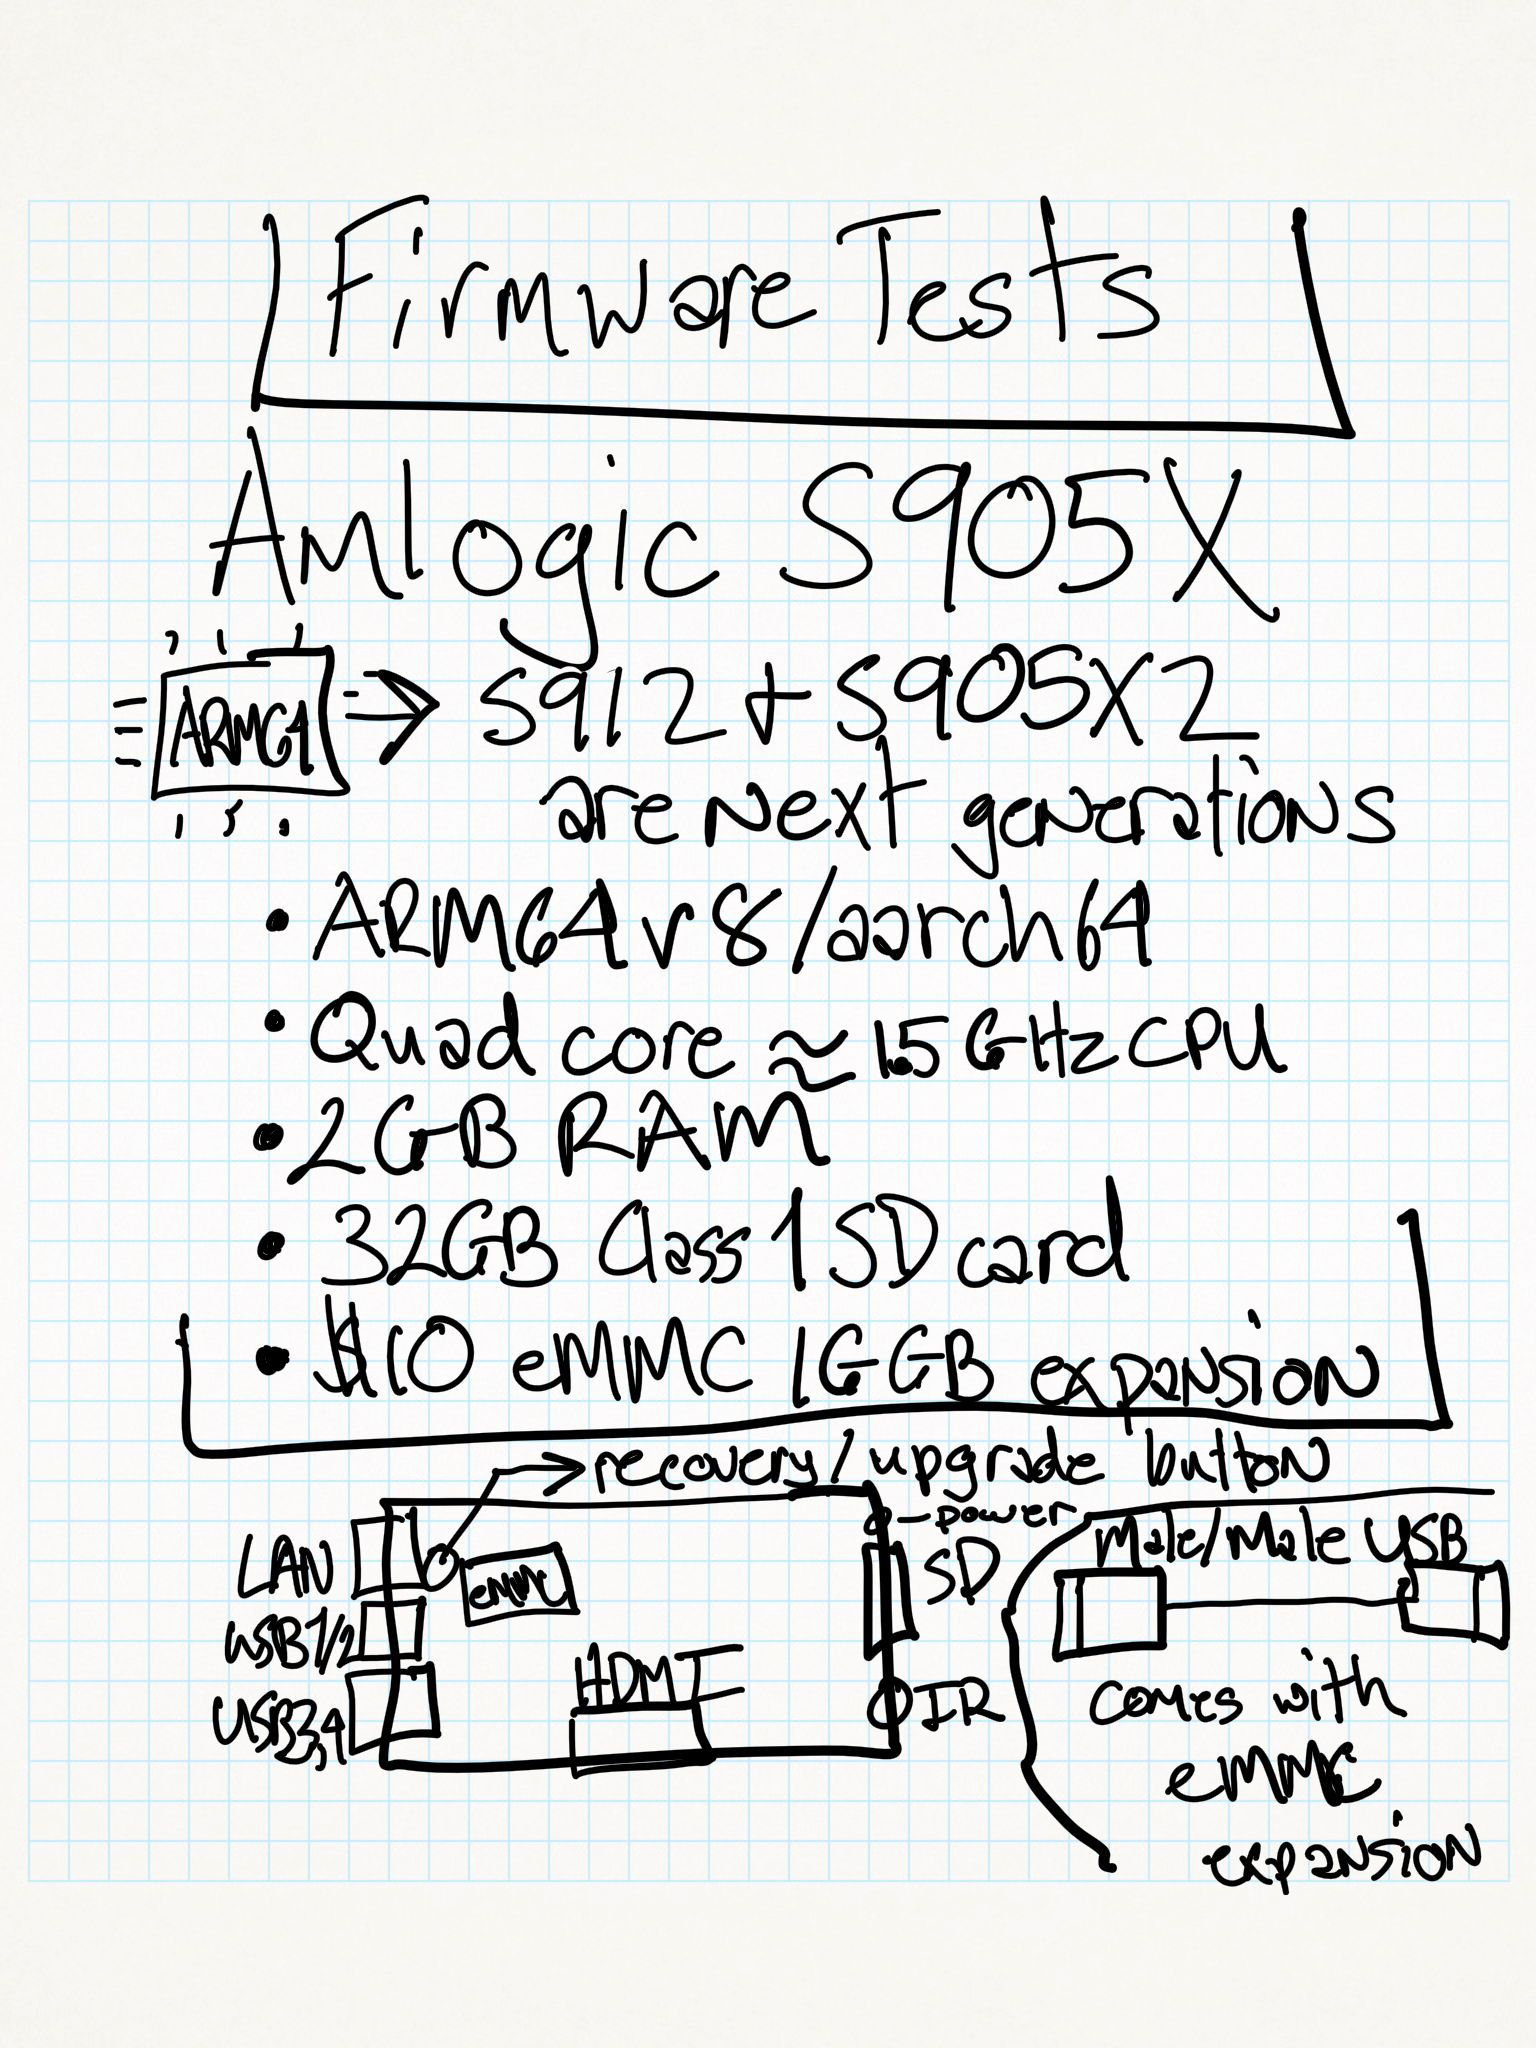 Firmware Tests
Amlogic S905X
ARM64
⇒ S912 + S905X2
are next generations
• ARM64v8/aarch64
• Quad core ≈ 1.5 GHz CPU
• 2GB RAM
• 32GB Class 1 SD card
• $10 eMMC 16GB expansion
→ recovery/upgrade button
LAN
eMMC
USB 1/2
USB3,4
HDMI
o-power
SD
IR
Male/Male USB
comes with
eMMC
expansion